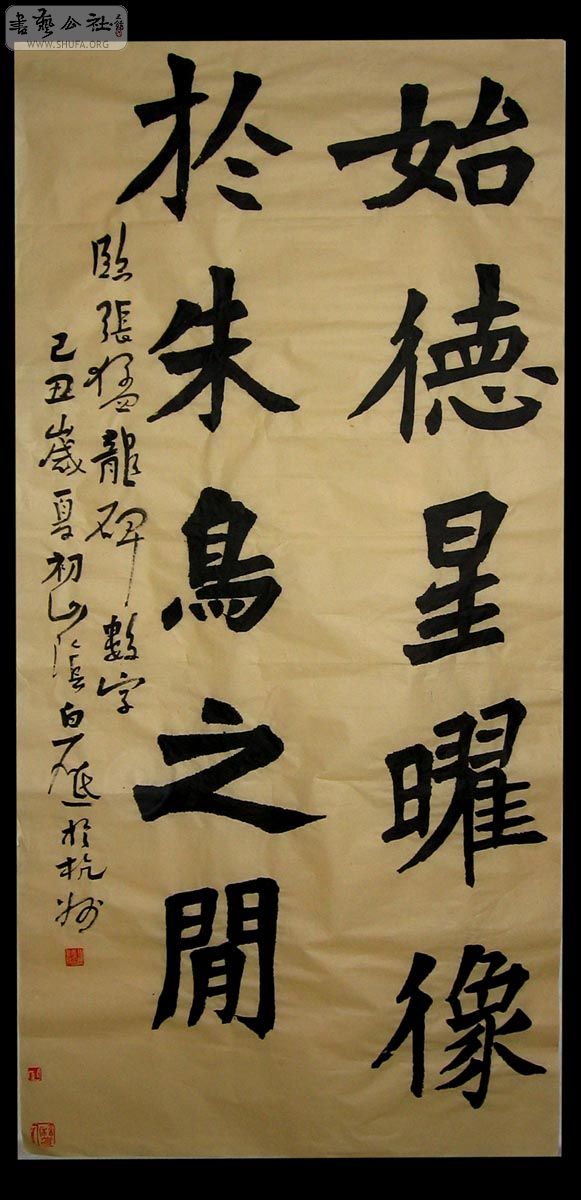 書藝公社
WWW.SHUFA.ORG
始德星曜像
於朱鳥之閒
臨張猛龍碑數字
己丑歲夏初山陰白砥於杭州